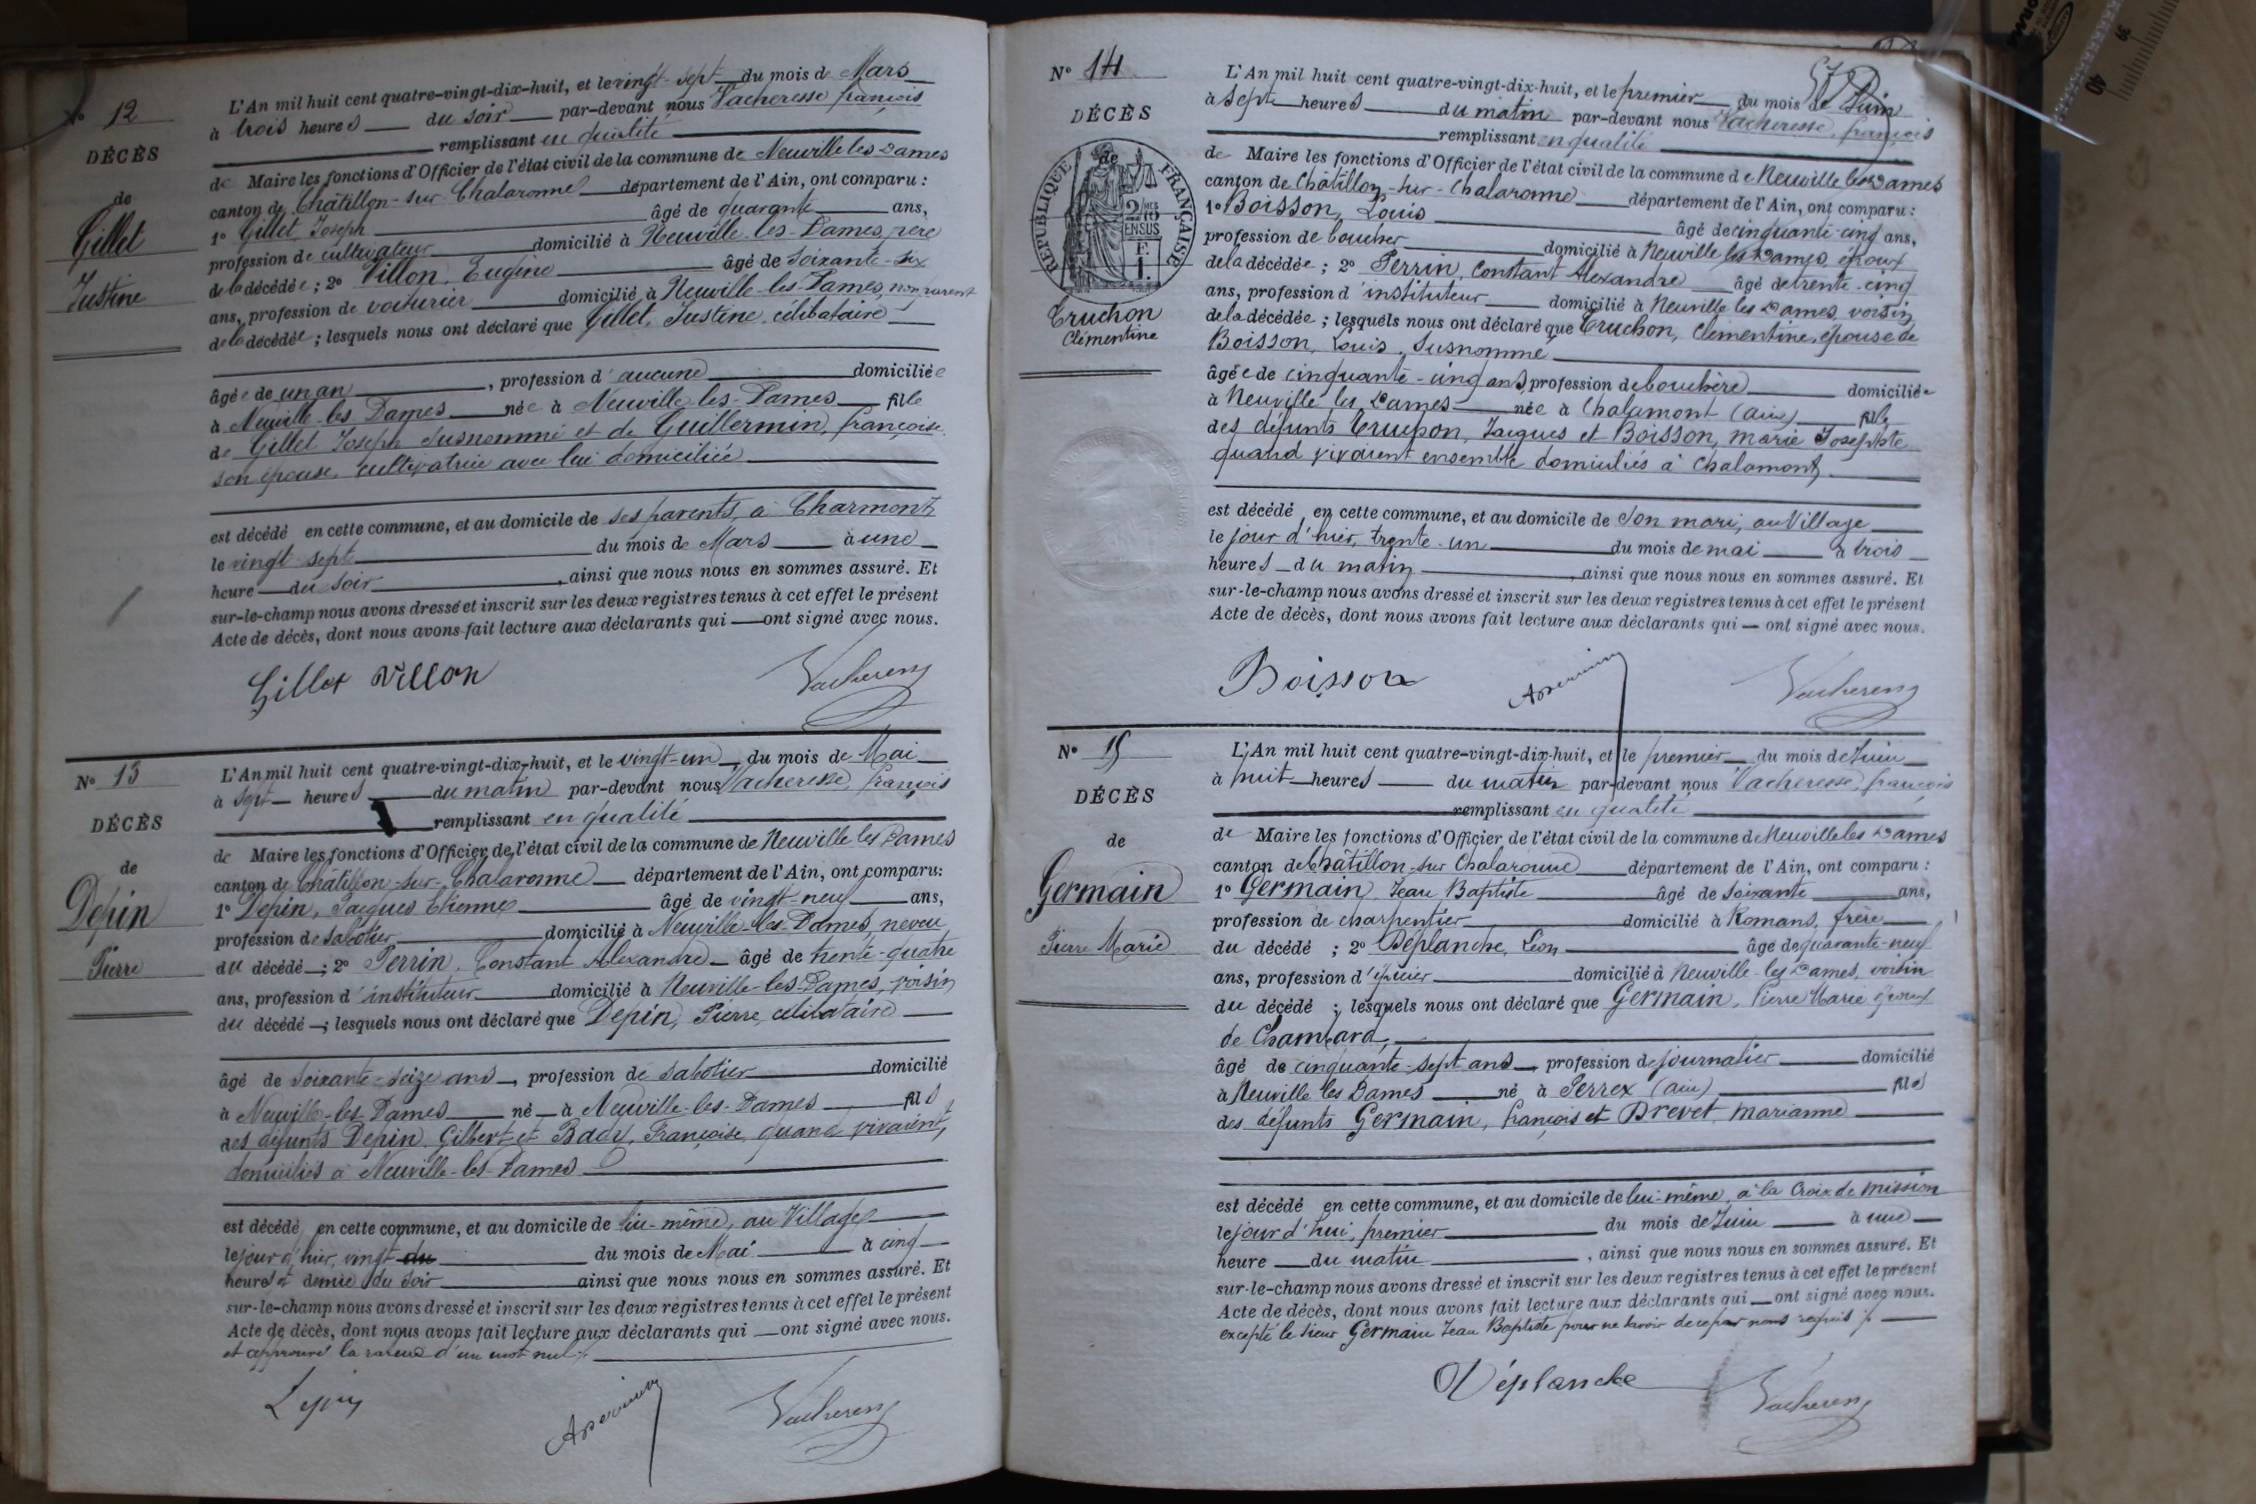 N° 12
DÉCÈS
de
Gillet
Justine
L'An mil huit cent quatre-vingt-dix-huit, et le vingt-sept du mois de Mars
à trois heures du soir par-devant nous Vacheresse françois
remplissant en qualité
de Maire les fonctions d'Officier de l'état civil de la commune de Neuville les Dames
canton de Châtillon-sur-Chalaronne département de l'Ain, ont comparu :
1° Gillet Joseph âgé de quarante ans,
profession de cultivateur domicilié à Neuville-les-Dames, père
de la décédée ; 2° Villon, Eugène âgé de soixante-six
ans, profession de voiturier domicilié à Neuville-les-Dames, non parent
de la décédée ; lesquels nous ont déclaré que Gillet, Justine, célibataire
âgée de un an, profession d'aucune domiciliée
à Neuville-les-Dames née à Neuville-les-Dames fille
de Gillet Joseph susnommé et de Guillermin, françoise
son épouse, cultivatrice avec lui domiciliée
est décédé en cette commune, et au domicile de ses parents, à Charmont
le vingt-sept du mois de Mars à une
heure du soir, ainsi que nous nous en sommes assuré. Et
sur-le-champ nous avons dressé et inscrit sur les deux registres tenus à cet effet le présent
Acte de décès, dont nous avons fait lecture aux déclarants qui ont signé avec nous.
Gillet Villon
N° 13
DÉCÈS
de
Depin
Pierre
L'An mil huit cent quatre-vingt-dix-huit, et le vingt-un du mois de Mai
à sept heures du matin par-devant nous Vacheresse, françois
remplissant en qualité
de Maire les fonctions d'Officier de l'état civil de la commune de Neuville les Dames
canton de Châtillon-sur-Chalaronne département de l'Ain, ont comparu :
1° Depin, Jacques Etienne âgé de vingt-neuf ans,
profession de sabotier domicilié à Neuville-les-Dames, neveu
du décédé ; 2° Perrin, Constant Alexandre âgé de trente-quatre
ans, profession d'instituteur domicilié à Neuville-les-Dames, voisin
du décédé ; lesquels nous ont déclaré que Depin, Pierre, célibataire
âgé de soixante-seize ans, profession de sabotier domicilié
à Neuville-les-Dames né à Neuville-les-Dames fils
des défunts Depin, Gilbert et Bady, Françoise, quand vivaient,
domiciliés à Neuville-les-Dames
est décédé en cette commune, et au domicile de lui-même, au Village
le jour d'hier, vingt du du mois de Mai à cinq
heures et demie du soir ainsi que nous nous en sommes assuré. Et
sur-le-champ nous avons dressé et inscrit sur les deux registres tenus à cet effet le présent
Acte de décès, dont nous avons fait lecture aux déclarants qui ont signé avec nous.
et approuvé la rature d'un mot nul
N° 14
DÉCÈS
de
RÉPUBLIQUE FRANÇAISE
Truchon
Clémentine
L'An mil huit cent quatre-vingt-dix-huit, et le premier du mois de Juin
à sept heures du matin par-devant nous Vacheresse, françois
remplissant en qualité
de Maire les fonctions d'Officier de l'état civil de la commune de Neuville les Dames
canton de Châtillon-sur-Chalaronne département de l'Ain, ont comparu :
1° Boisson, Louis âgé de cinquante-cinq ans,
profession de boucher domicilié à Neuville les Dames, époux
de la décédée ; 2° Perrin, Constant Alexandre âgé de trente-cinq
ans, profession d'instituteur domicilié à Neuville les Dames, voisin
de la décédée ; lesquels nous ont déclaré que Truchon, Clémentine, épouse de
Boisson, Louis, susnommé
âgée de cinquante-cinq ans, profession de bouchère domiciliée
à Neuville les Dames née à Chalamont (ain) fille
des défunts Truchon, Jacques et Boisson, marie Josephte
quand vivaient ensemble domiciliés à Chalamont
est décédé en cette commune, et au domicile de son mari, au Village
le jour d'hier, trente-un du mois de mai à trois
heures du matin, ainsi que nous nous en sommes assuré. Et
sur-le-champ nous avons dressé et inscrit sur les deux registres tenus à cet effet le présent
Acte de décès, dont nous avons fait lecture aux déclarants qui ont signé avec nous.
Boisson
N° 15
DÉCÈS
de
Germain
Pierre Marie
L'An mil huit cent quatre-vingt-dix-huit, et le premier du mois de Juin
à huit heures du matin par-devant nous Vacheresse, françois
remplissant en qualité
de Maire les fonctions d'Officier de l'état civil de la commune de Neuville les Dames
canton de Châtillon-sur-Chalaronne département de l'Ain, ont comparu :
1° Germain, Jean Baptiste âgé de soixante ans,
profession de charpentier domicilié à Romans, frère
du décédé ; 2° Déplanche, Léon âgé de quarante-neuf
ans, profession d'épicier domicilié à Neuville-les-Dames, voisin
du décédé ; lesquels nous ont déclaré que Germain, Pierre Marie époux
de Chambard,
âgé de cinquante-sept ans, profession de journalier domicilié
à Neuville les Dames né à Perrex (ain) fils
des défunts Germain, françois et Brevet, marianne
est décédé en cette commune, et au domicile de lui-même, à la Croix de mission
le jour d'hui, premier du mois de Juin à une
heure du matin, ainsi que nous nous en sommes assuré. Et
sur-le-champ nous avons dressé et inscrit sur les deux registres tenus à cet effet le présent
Acte de décès, dont nous avons fait lecture aux déclarants qui ont signé avec nous.
excepté le sieur Germain Jean Baptiste pour ne savoir de ce par nous requis
Déplanche